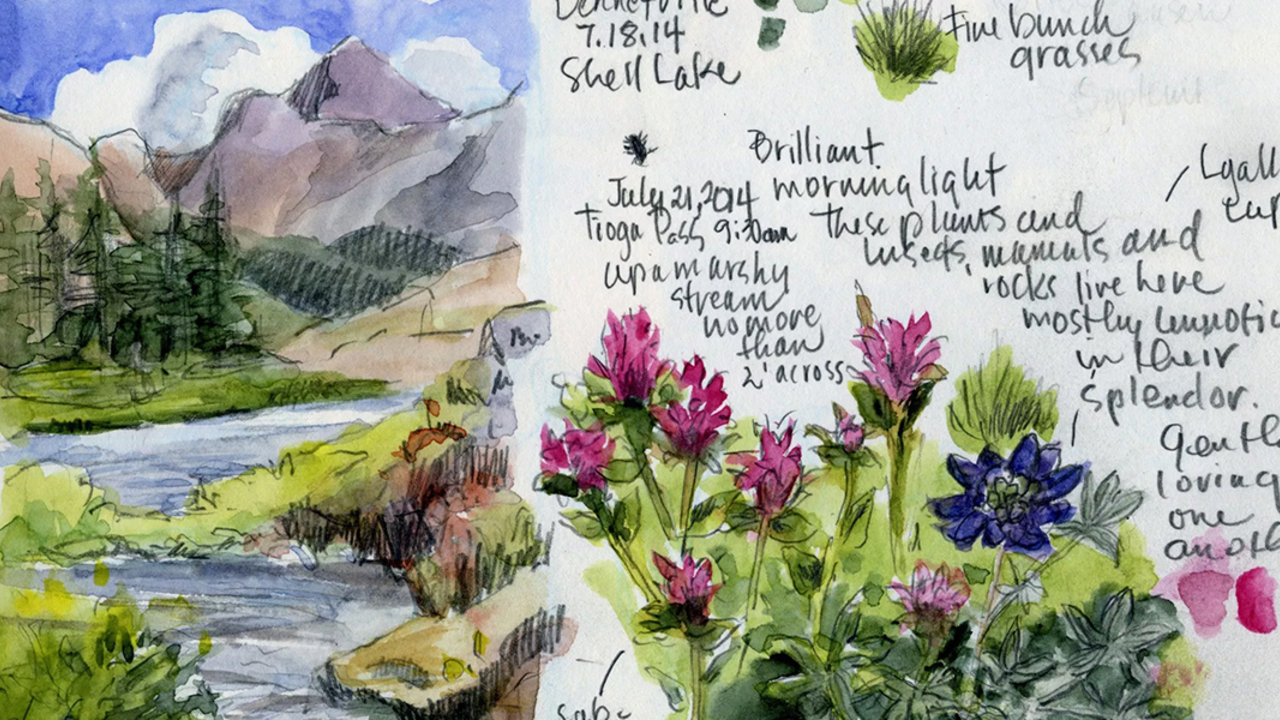 7.18.14
Shell Lake
Fine bunch
grasses
July 21, 2014
Tioga Pass 9:30am
up a marshy
stream
no more
than
2' across
Brilliant
morning light
these plants and
insects, mamals and
rocks live here
mostly
in their
splendor.
Gentl
loving
one
anoth
Lyall
Lup